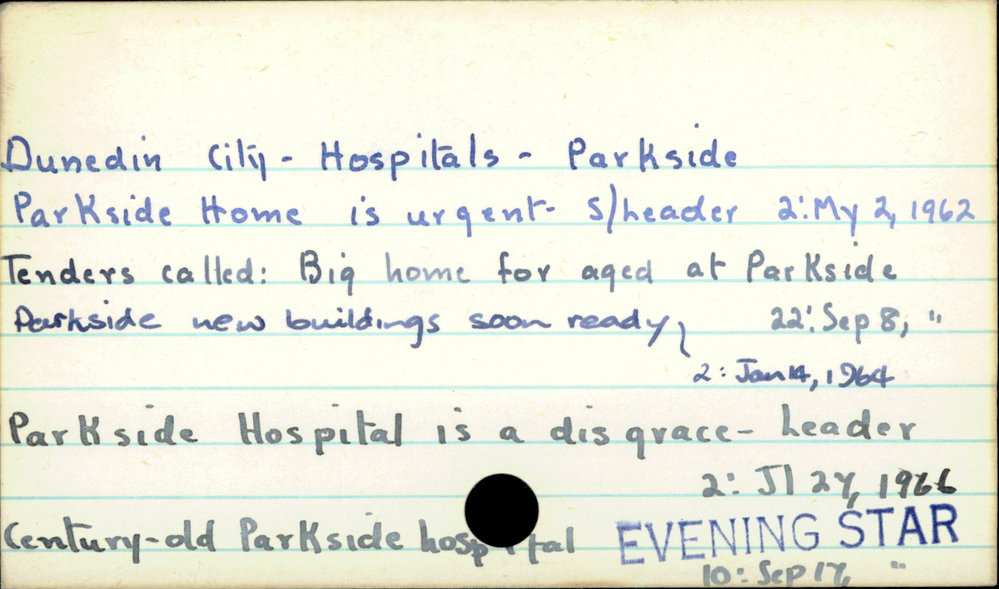 Dunedin City - Hospitals - Parkside
Parkside Home is urgent - S/header 2: My 2, 1962
Tenders called: Big home for aged at Parkside
22: Sep 8, "
Parkside new buildings soon ready,
2: Jan 14, 1964
Parkside Hospital is a disgrace - header
2: Jl 27, 1966
Century-old Parkside hospital
EVENING STAR
10: Sep 17, "